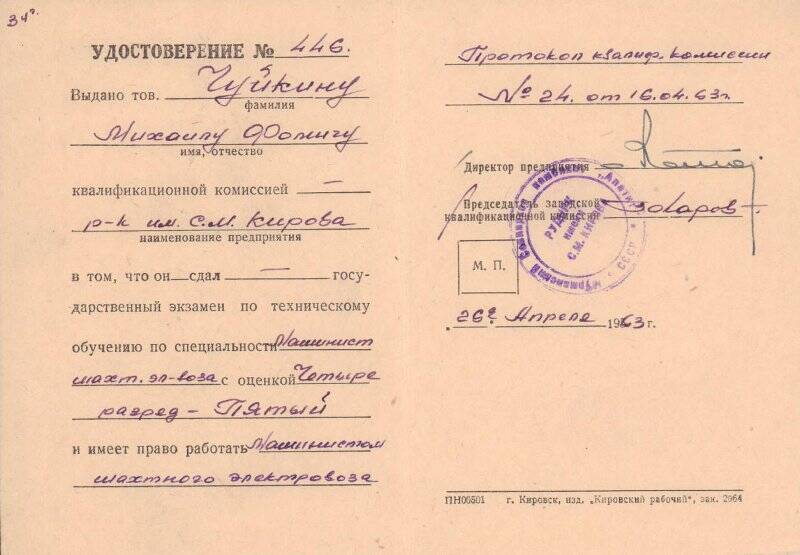 34г.
УДОСТОВЕРЕНИЕ № 446.
Выдано тов. Чуйкину
фамилия
Михаилу Фомичу
имя, отчество
квалификационной комиссией —
р-к им. С.М. Кирова
наименование предприятия
в том, что он сдал — госу-
дарственный экзамен по техническому
обучению по специальности Машинист
шахт. эл-воза с оценкой Четыре
разряд - Пятый
и имеет право работать Машинистом
шахтного электровоза
Протокол квалиф. комиссии
№ 24. от 16.04.63г.
Директор предприятия
Председатель заводской
квалификационной комиссии
РУДНИК
имени
С.М. КИРОВА
"Апатит" * СССР *
М. П.
"26г." Апреля 1963 г.
ПН00501 г. Кировск, изд. „Кировский рабочий", зак. 2964